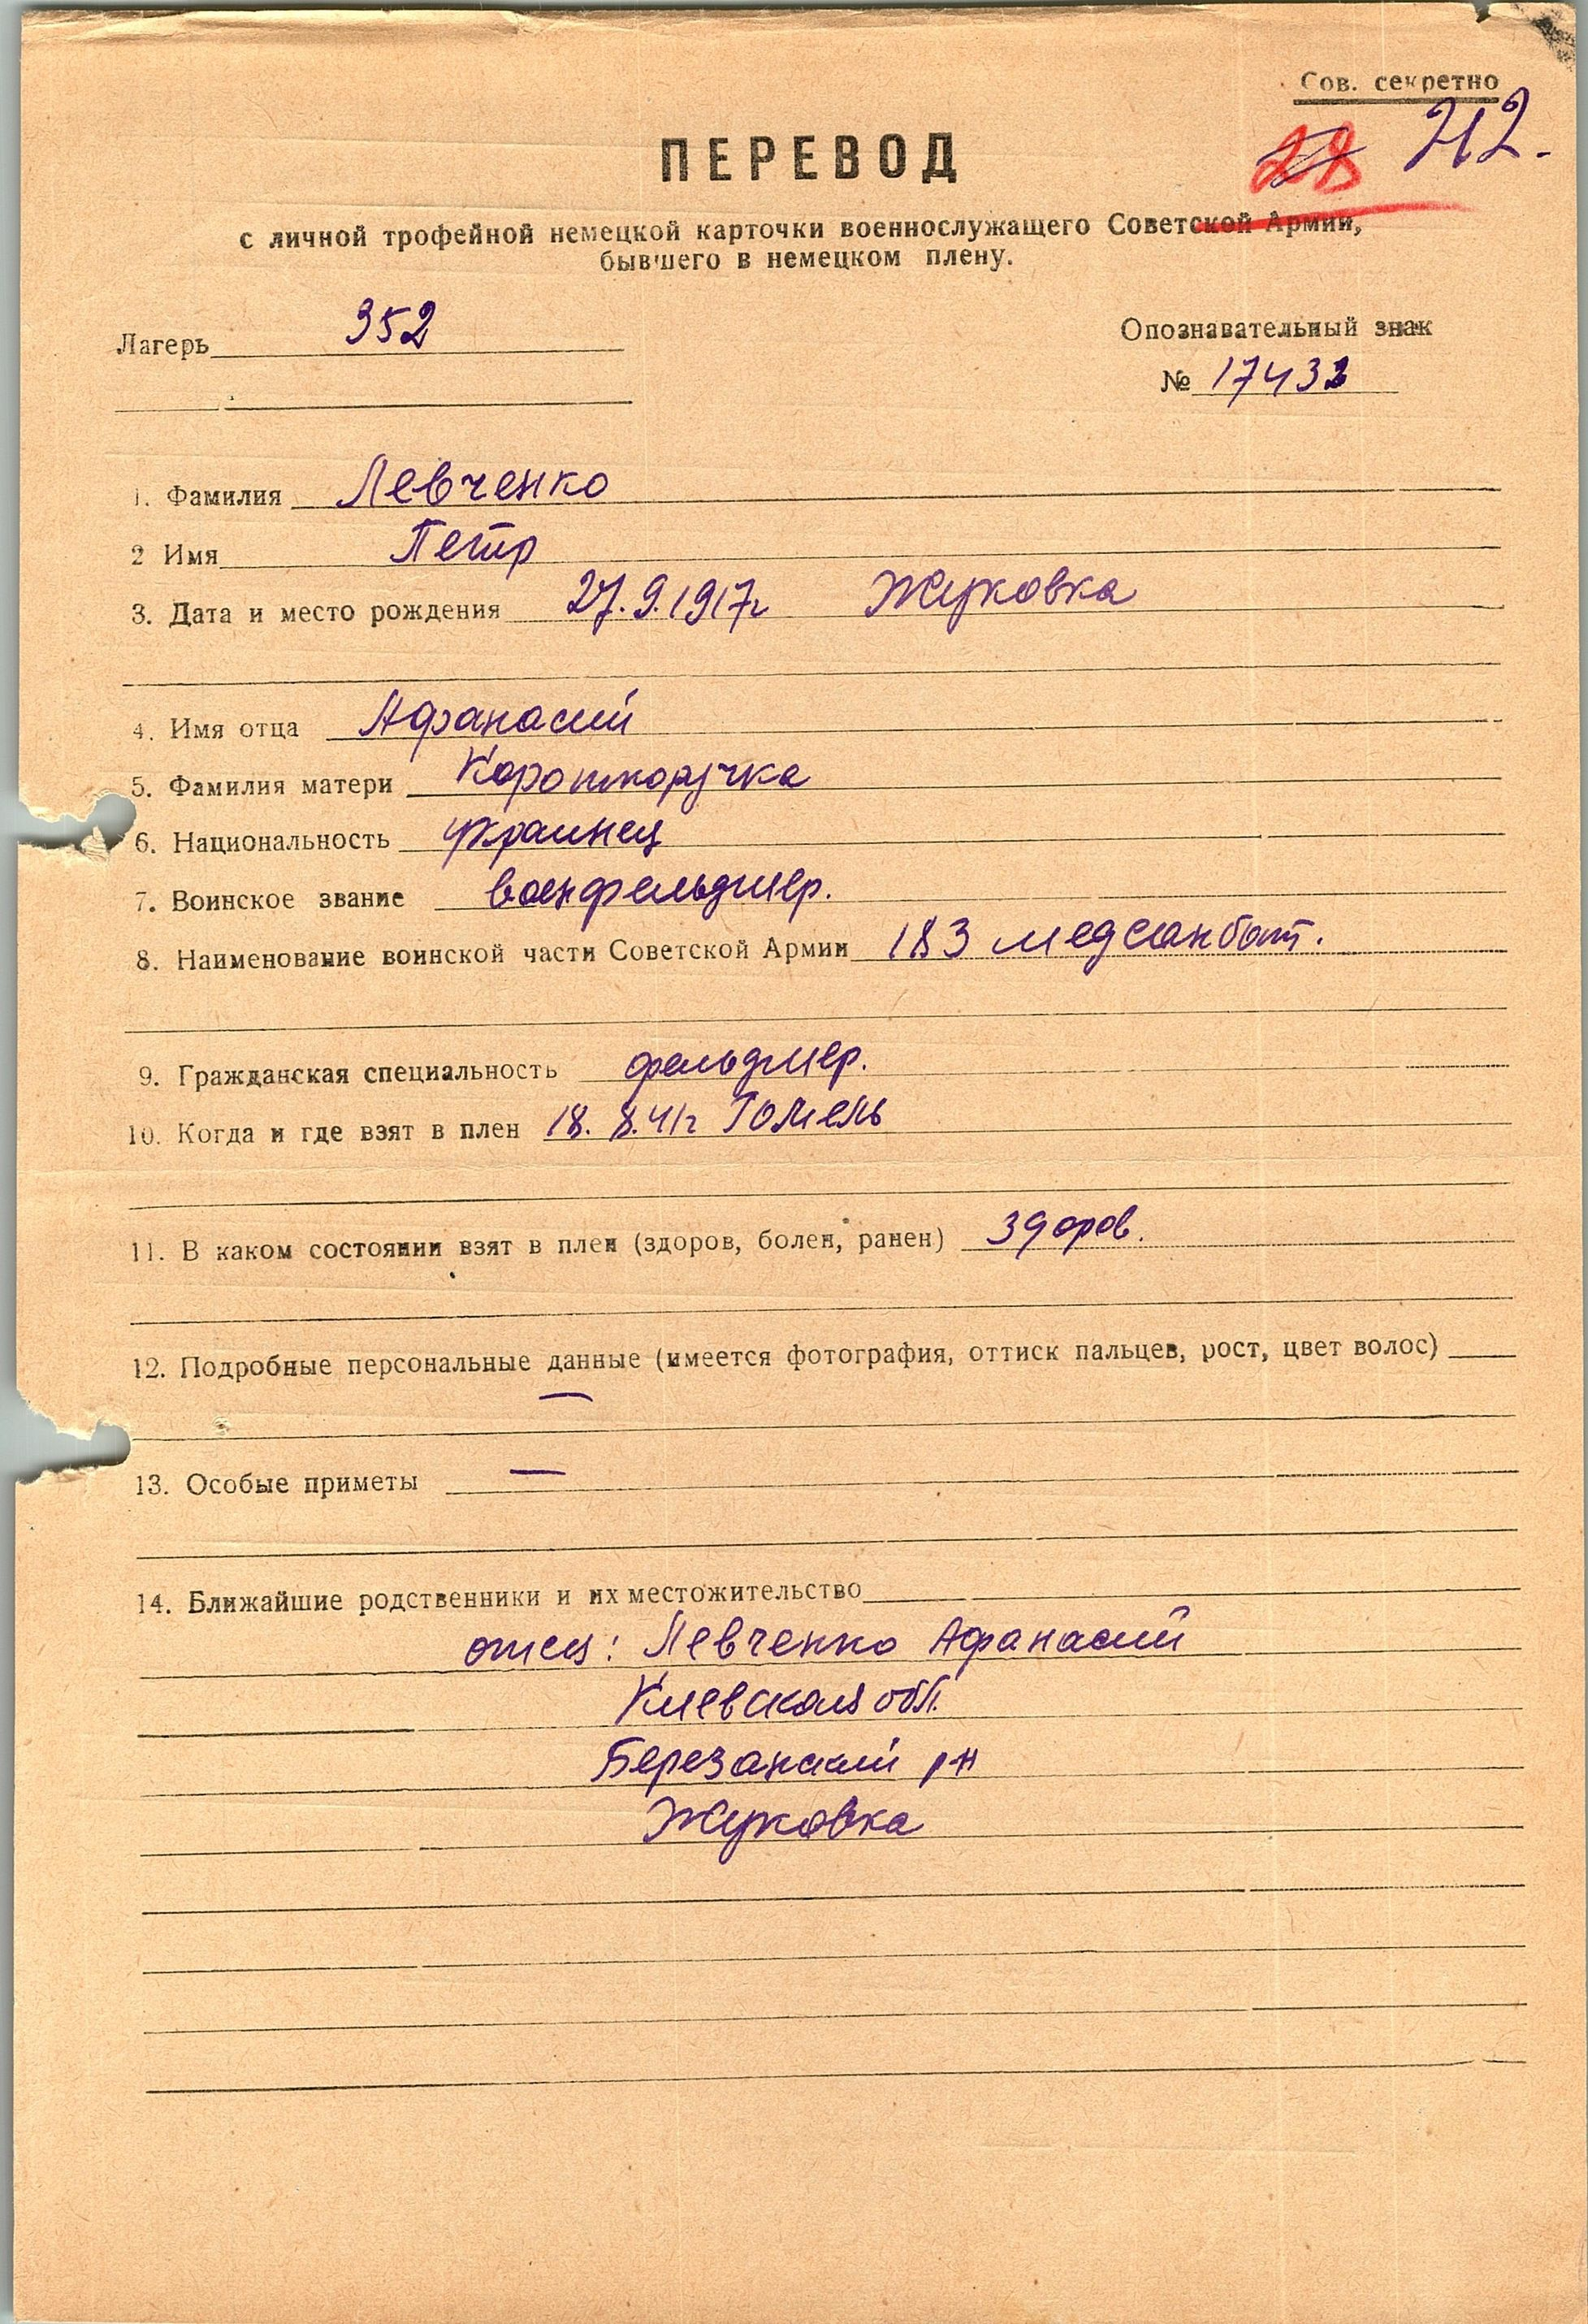 Сов. секретно
28 212.
ПЕРЕВОД
с личной трофейной немецкой карточки военнослужащего Советской Армии,
бывшего в немецком плену.
Лагерь 352
Опознавательный знак
№ 17432
1. Фамилия Левченко
2 Имя Петр
3. Дата и место рождения 27.9.1917г Жуковка
4. Имя отца Афанасий
5. Фамилия матери Короткоручка
6. Национальность украинец
7. Воинское звание военфельдшер.
8. Наименование воинской части Советской Армии 183 медсанбат.
9. Гражданская специальность фельдшер.
10. Когда и где взят в плен 18. 8.41г Гомель
11. В каком состоянии взят в плен (здоров, болен, ранен) здоров.
12. Подробные персональные данные (имеется фотография, оттиск пальцев, рост, цвет волос)
—
13. Особые приметы —
14. Ближайшие родственники и их местожительство
отец: Левченко Афанасий
Киевская обл.
Березанский р-н
Жуковка